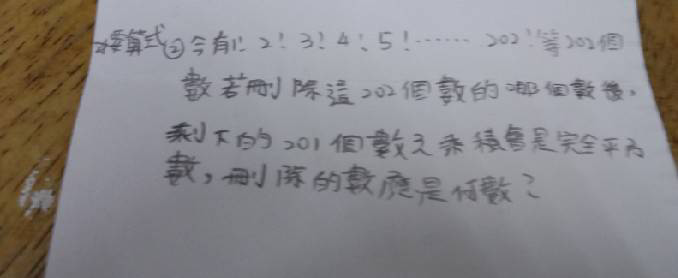 接算式②今有1! 2! 3! 4! 5!…… 202!等202個
數若刪除這202個數的哪個數後,
剩下的201個數之乘積會是完全平方
數,刪除的數應是何數?